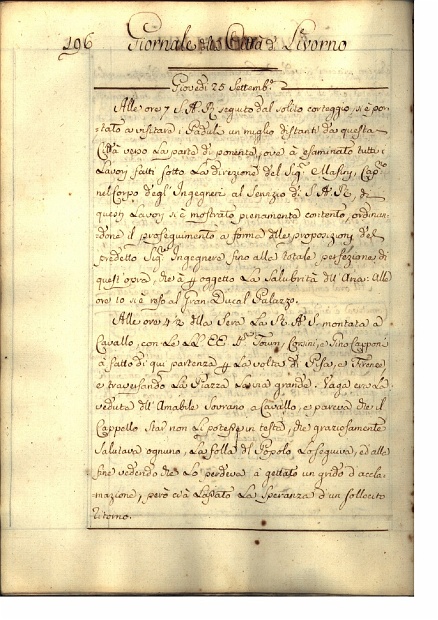 196 Giornale della Città di Livorno
Giovedì 25 Settemb.e
Alle ore 7 S. A. R. seguito dal solito corteggio si è por-
tato a visitare i Paduli un miglio distanti da questa
Città verso la parte di ponente, ove à esaminato tutti i
Lavori fatti sotto la direzione del Sig.r Masini Cap.no
nel Corpo degl' Ingegneri al Servizio di S. A. R., di
questi Lavori si è mostrato pienamente contento, ordinan-
done il proseguimento a forma delle proposizioni del
predetto Sig.re Ingegnere fino alla totale perfezione di
quest' opra, che à p oggetto La Salubrità dell' Aria. Alle
ore 10 si è reso al Gran Ducal Palazzo.
Alle ore 4 2 della Sera La R. A. S. montata a
Cavallo, con Le LL. EE. Corsini, e Gino Capponi
à fatto di qui partenza p La volta di Pisa, e Firenze
e traversando La Piazza La via grande. Vaga era La
veduta dell' Amabile Sovrano a Cavallo, e pareva che il
Cappello star non Li potesse in testa, che graziosamente
Salutava ognuno, La folla del Popolo Lo seguiva, ed alla
fine vedendo che Lo perdeva à gettato un grido d'accla-
mazione, però ci à Lasciato La Speranza d'un sollecito
ritorno.